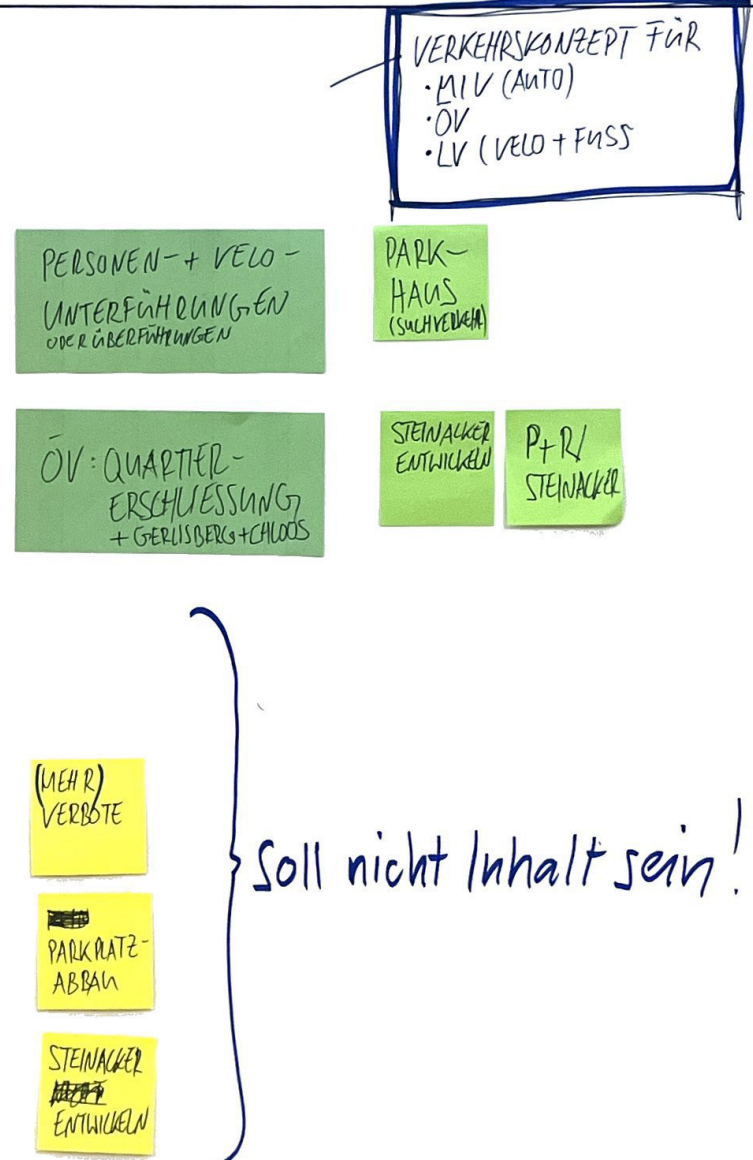 VERKEHRSKONZEPT FÜR
• MIV (AUTO)
• ÖV
• LV (VELO + FUSS
PERSONEN- + VELO-
UNTERFÜHRUNGEN
ODER ÜBERFÜHRUNGEN
PARK-
HAUS
(SUCHVERKEHR)
ÖV: QUARTIER-
ERSCHLIESSUNG
+ GERLISBERG + CHLOOS
STEINACKER
ENTWICKELN
P+R/
STEINACKER
(MEHR)
VERBOTE
PARKPLATZ-
ABBAU
STEINACKER
ENTWICKELN
Soll nicht Inhalt sein!